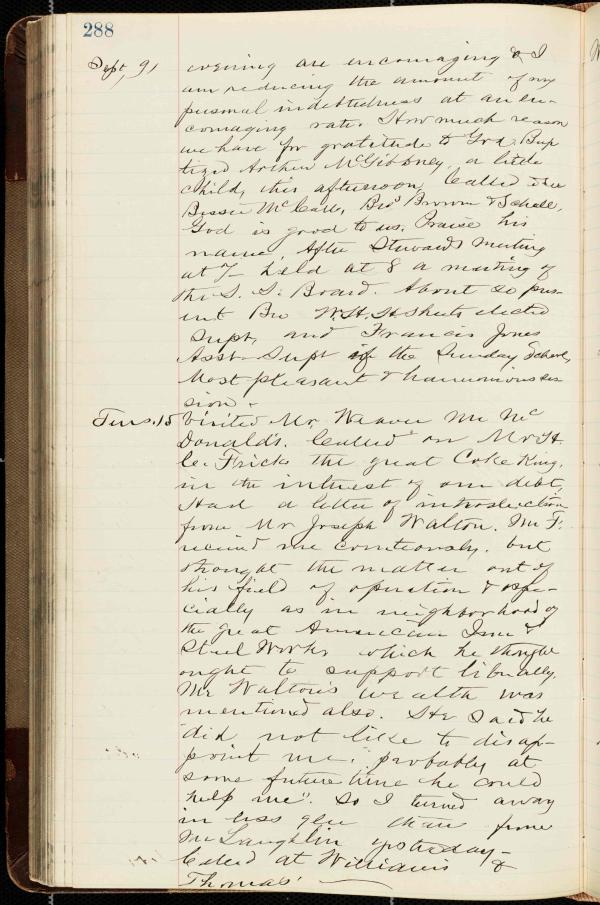 288
Sept, 91 evening are encouraging & I
am reducing the amount of my
personal indebtedness at an en-
couraging rate. How much reason
we have for gratitude to God. Bap
tized Arthur McGibbney, a little
child, this afternoon, Called
Bessie McCall, Bros Brown & Schell,
God is good to us. Praise his
name. After Stewards Meeting
at 7 held at 8 a meeting of
the S. S. Board. About 20 pres-
ent Bro W.H.H. Sheets elected
Supt, and Francis Jones
Asst-Supt of the Sunday School,
Most pleasant & harmonious ses
sion -
Tues. 15 Visited Mr, Weaver Mr Mc
Donald's. Called on Mr H.
C. Frick the great Coke King,
in the interest of our debt,
Had a letter of introduction
from Mr Joseph Walton. Mr F.
received me courteously, but
thought the matter out of
his field of operation & espe-
cially as in neighborhood of
the great American Iron &
Steel Works which he thought
ought to support liberally.
Mr Walton's wealth was
mentioned also. He said he
"did not like to disap-
point me," probably at
some future time he could
help me". So I turned away
in less than from
McLaughlin yesterday -
Called at Williams &
Thomas'